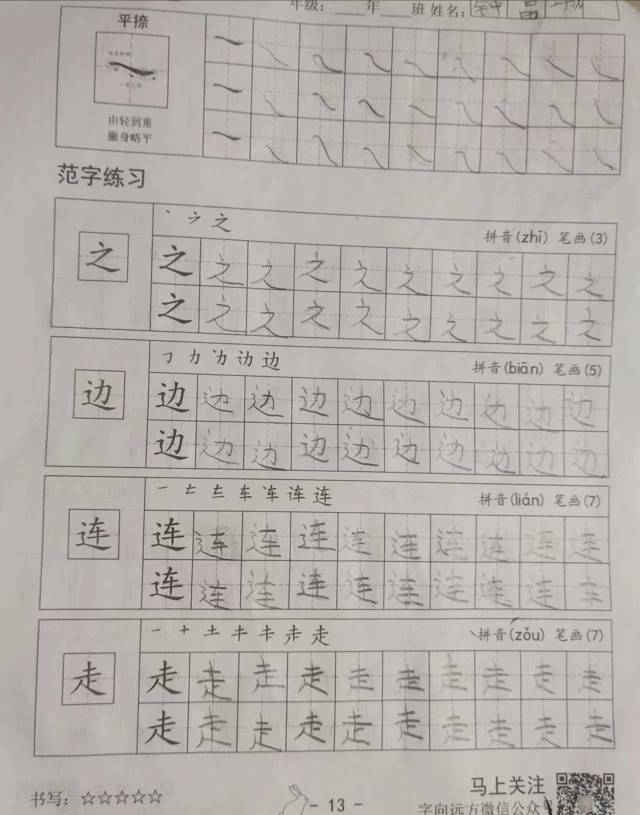 年级: 年 班 姓名: 钟昌
平捺
由轻到重
撇身略平
范字练习
丶 之
拼音(zhī) 笔画(3)
之 之 之 之 之 之 之 之 之 之 之
之 之 之 之 之 之 之 之 之 之
边
拼音(biān) 笔画(5)
边 边 边 边 边 边 边 边 边 边 边
边 边 边 边 边 边 边 边 边 边
一 车 连
拼音(lián) 笔画(7)
连 连 连 连 连 连 连 连 连 连 连
连 连 连 连 连 连 连 连 连 车
一 十 土 走
拼音(zǒu) 笔画(7)
走 走 走 走 走 走 走 走 走 走 走
走 走 走 走 走 走 走 走 走 走
书写: ☆☆☆☆☆
- 13 -
马上关注
字向远方微信公众